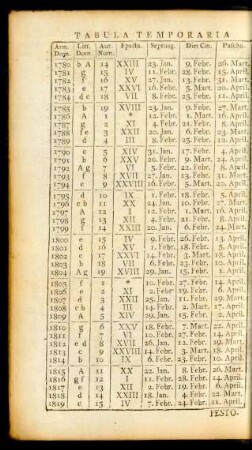 TABULA TEMPORARIA
Ann. Dom. Litt. Dom. Aur. Num. Epacta. Septuag. Dies Cin. Pascha.
1780 b A 14 XXIII 23. Jan. 9. Febr. 26. Mart.
1781 g 15 IV 11. Febr. 28. Febr. 15. April.
1782 f 16 XV 27. Jan. 13. Febr. 31. Mart.
1783 e 17 XXVI 16. Febr. 5. Mart. 20. April.
1784 dc 18 VII 8. Febr. 25. Febr. 11. April.
1785 b 19 XVIII 23. Jan. 9. Febr. 27. Mart.
1786 A 1 * 12. Febr. 1. Mart. 16. April.
1787 g 2 XI 4. Febr. 21. Febr. 8. April.
1788 f e 3 XXII 20. Jan. 6. Febr. 23. Mart.
1789 d 4 III 8. Febr. 25. Febr. 12. April.
1790 c 5 XIV 31. Jan. 17. Febr. 4. April.
1791 b 6 XXV 20. Febr. 9. Mart. 24. April.
1792 A g 7 VI 5. Febr. 22. Febr. 8. April.
1793 f 8 XVII 27. Jan. 13. Febr. 31. Mart.
1794 e 9 XXVIII 16. Febr. 5. Mart. 20. April.
1795 d 10 IX 1. Febr. 18. Febr. 5. April.
1796 c b 11 XX 24. Jan. 10. Febr. 27. Mart.
1797 A 12 I 12. Febr. 1. Mart. 16. April.
1798 g 13 XII 4. Febr. 21. Febr. 8. April.
1799 f 14 XXIII 20. Jan. 6. Febr. 24. Mart.
1800 e 15 IV 9. Febr. 26. Febr. 13. April.
1801 d 16 XV 1. Febr. 18. Febr. 5. April.
1802 c 17 XXVI 14. Febr. 3. Mart. 18. April.
1803 b 18 VII 6. Febr. 23. Febr. 10. April.
1804 A g 19 XVIII 29. Jan. 15. Febr. 1. April.
1805 f 1 * 10. Febr. 27. Febr. 14. April.
1806 e 2 XI 2. Febr. 19. Febr. 6. April.
1807 d 3 XXII 25. Jan. 11. Febr. 29. Mart.
1808 c b 4 III 14. Febr. 2. Mart. 17. April.
1809 A 5 XIV 29. Jan. 15. Febr. 2. April.
1810 g 6 XXV 18. Febr. 7. Mart. 22. April.
1811 f 7 VI 10. Febr. 27. Febr. 14. April.
1812 e d 8 XVII 26. Jan. 12. Febr. 29. Mart.
1813 c 9 XXVIII 14. Febr. 3. Mart. 18. April.
1814 b 10 IX 6. Febr. 23. Febr. 10. April.
1815 A 11 XX 22. Jan. 8. Febr. 26. Mart.
1816 g f 12 I 11. Febr. 28. Febr. 14. April.
1817 e 13 XII 2. Febr. 19. Febr. 6. April.
1818 d 14 XXIII 18. Jan. 4. Febr. 22. Mart.
1819 c 15 IV 7. Febr. 24. Febr. 11. April.
FESTO-